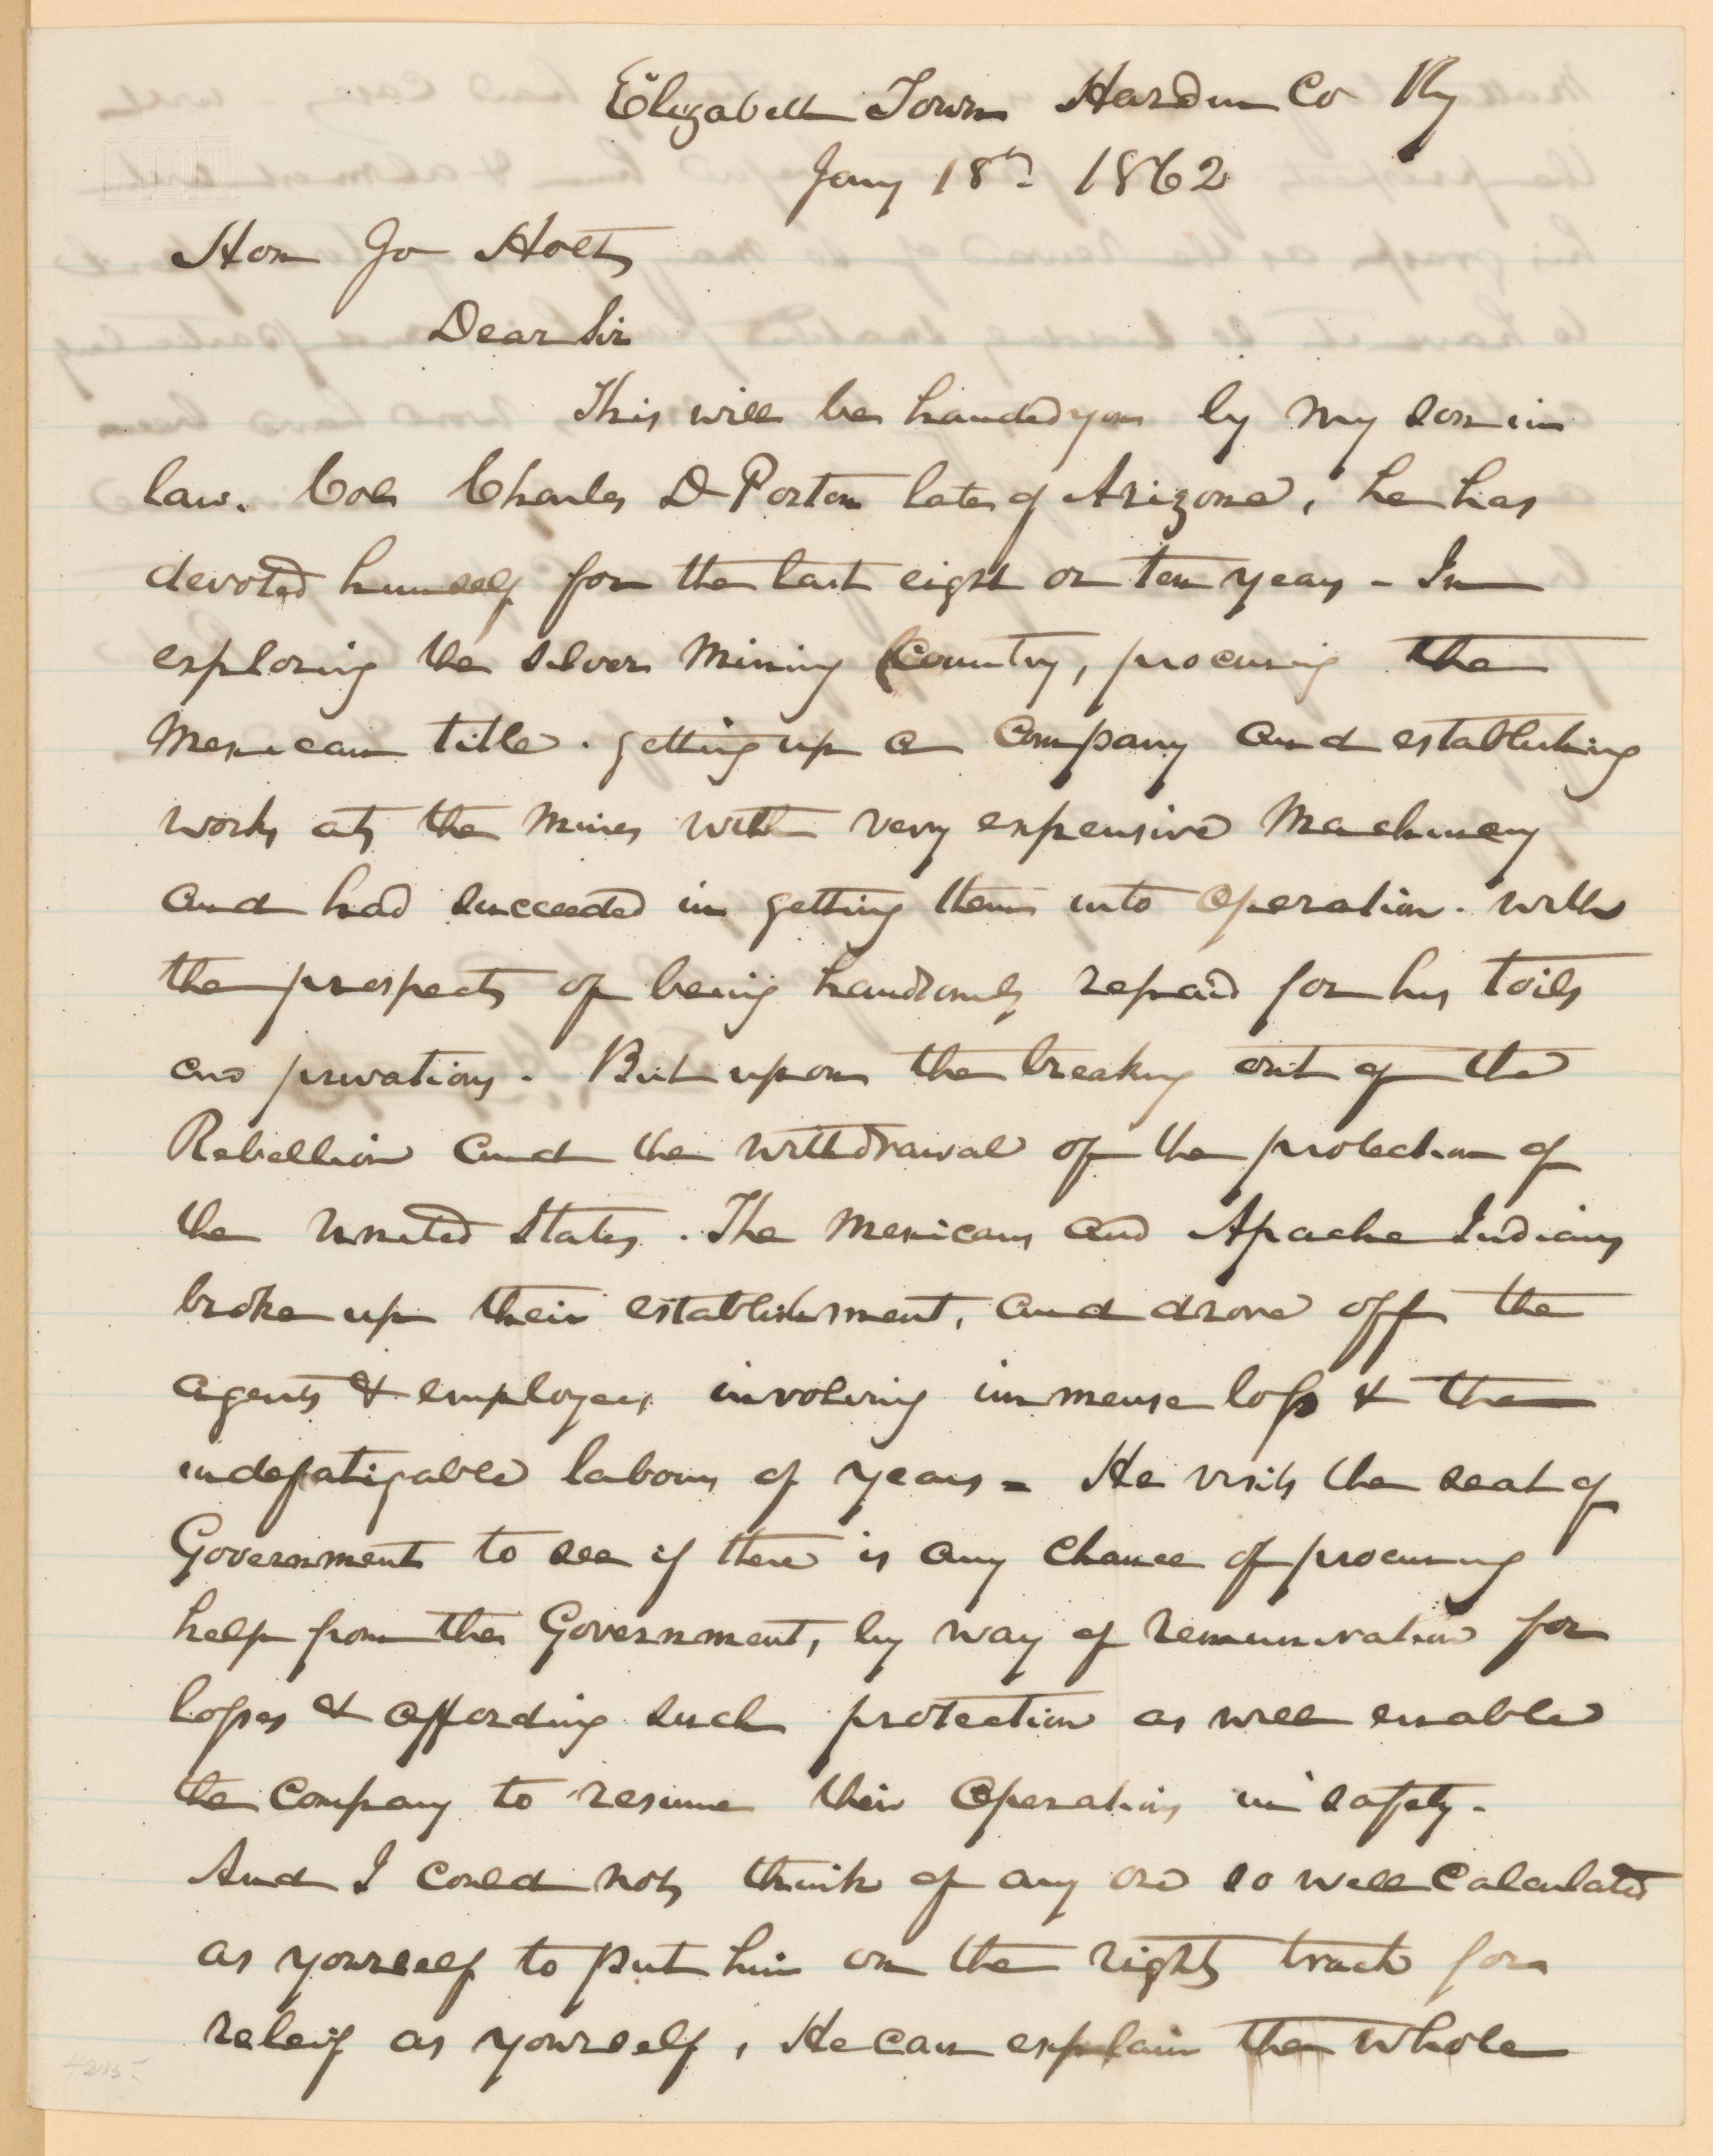 Elizabeth Town Hardin Co Ky
Jany 18th 1862
Hon Jo Holt
Dear Sir
This will be handed you by my son in
law. Col Charles D Poston late of Arizona, he has
devoted himself for the last eight or ten years - In
exploring the silver mining Country, procuring the
Mexican title. getting up a Company and establishing
works at the mines with very expensive Machinery
and had succeeded in getting them into operation. with
the prospects of being handsomely repaid for his toils
and privations. But upon the breaking out of the
Rebellion and the withdrawal of the protection of
the United States. The Mexicans and Apache Indians
broke up their establishment, and drove off the
agents & employees involving immense loss & the
indefatigable labours of years = He visits the seat of
Government to see if there is any chance of procuring
help from the Government, by way of remuneration for
losses & affording such protection as will enable
the Company to resume their operations in safety.
And I could not think of any one so well calculated
as yourself to put him on the right track for
releif as yourself, He can explain the whole